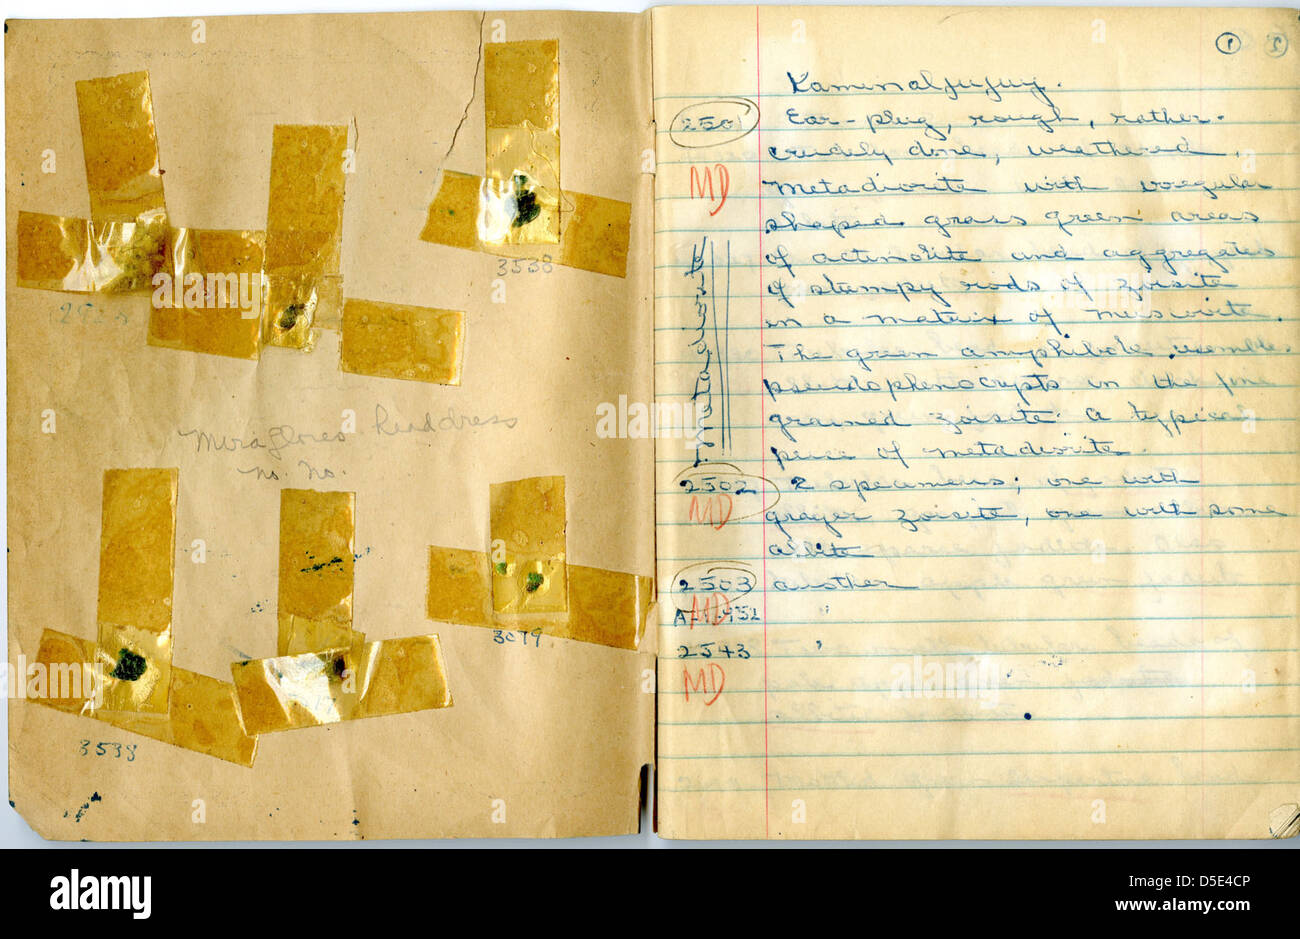 3538
2528
Miraflores headdress
No. No.
3079
3538
1
Kaminaljujuy.
2501 Ear-plug, rough, rather
crudely done, weathered,
MD metadiorite with irregular
shaped grass green areas
of actinolite and aggregates
of stumpy rods of zoisite
in a matrix of muscovite.
The green amphibole resemble
pseudophenocrysts in the fine
grained zoisite. A typical
piece of metadiorite.
Metadiorite
2502 2 specimens; one with
MD grayer zoisite, one with some
albite
2503 another
MD
A-1952 "
2543 "
MD
alamy
Image ID: D5E4CP
www.alamy.com